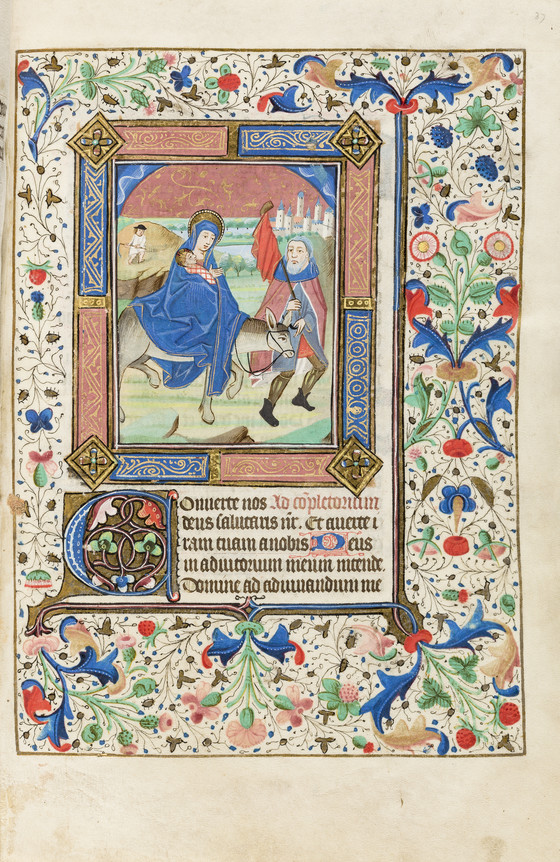 Onuerte nos Ad co̅pletorium
deus salutaris n̅r. Et auerte i
ram tuam a nobis Deus
in adiutorium meum intende.
Domine ad adiuuandum me